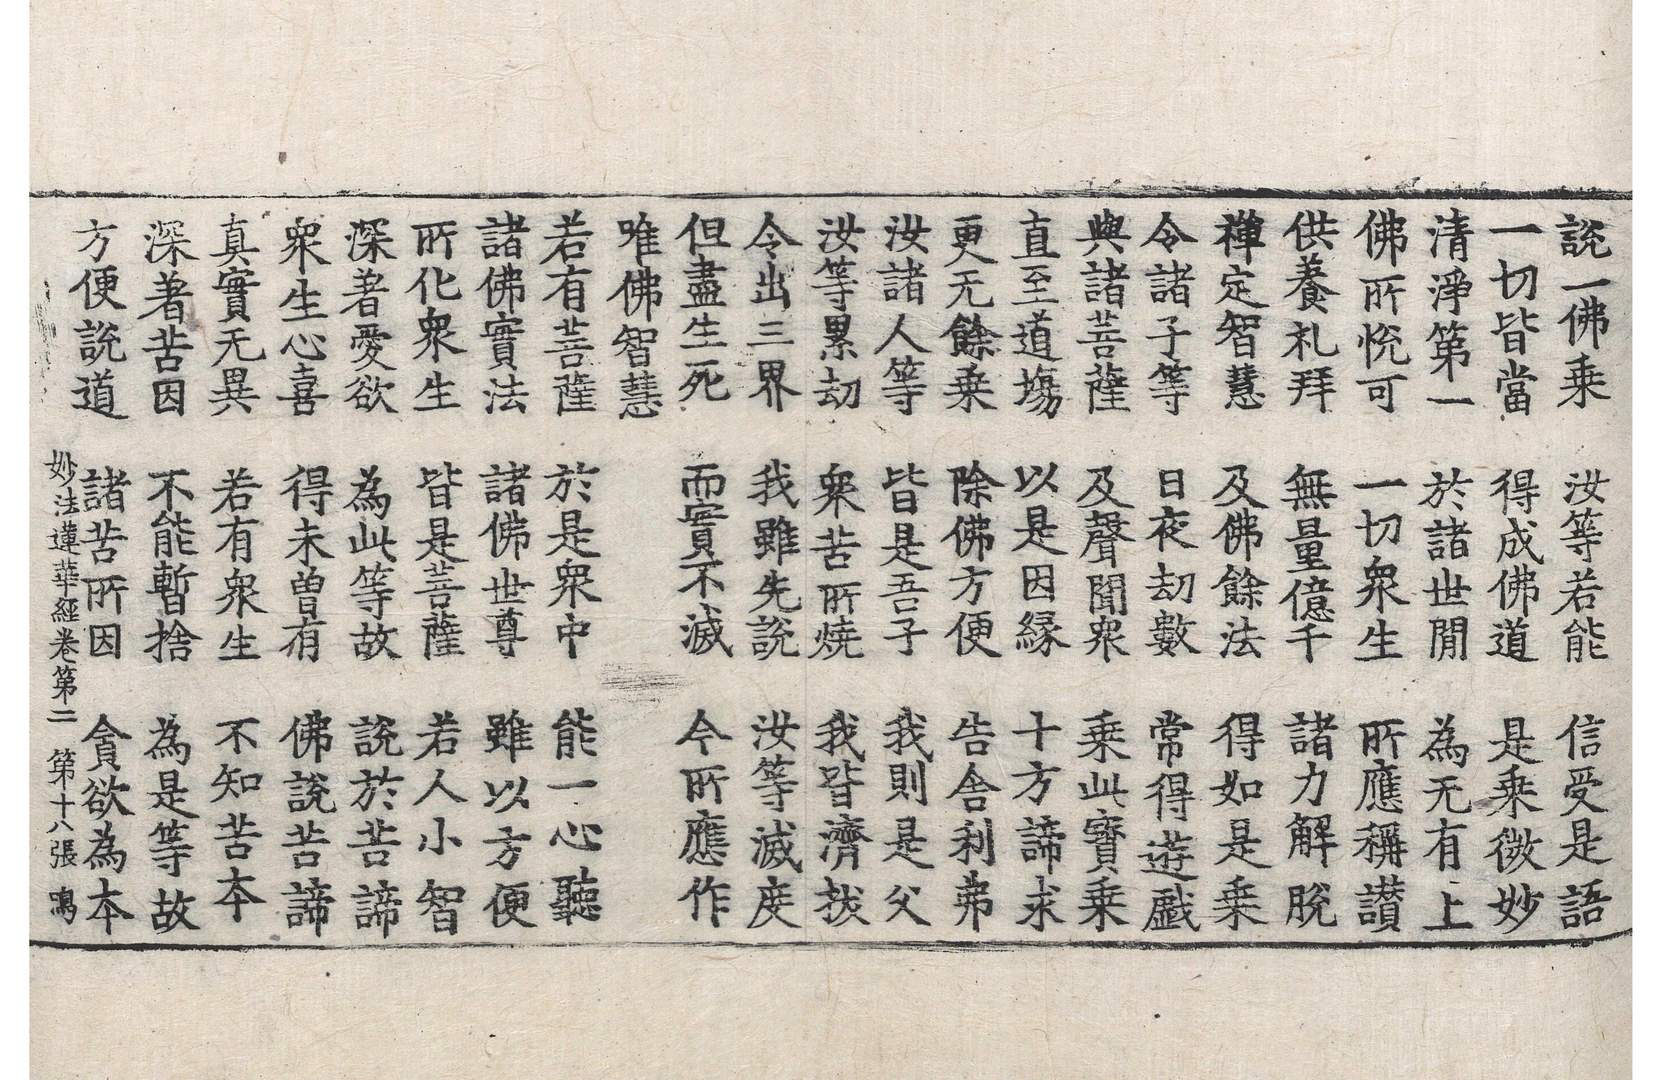 說一佛乘 汝等若能 信受是語
一切皆當 得成佛道 是乘微妙
清淨第一 於諸世閒 為无有上
佛所悅可 一切衆生 所應稱讃
供養礼拜 無量億千 諸力解脫
禪定智慧 及佛餘法 得如是乘
令諸子等 日夜劫數 常得遊戲
與諸菩薩 及聲聞衆 乘此寶乘
直至道場 以是因緣 十方諦求
更无餘乘 除佛方便 告舍利弗
汝諸人等 皆是吾子 我則是父
汝等累劫 衆苦所燒 我皆濟拔
令出三界 我雖先說 汝等滅度
但盡生死 而實不滅 今所應作
唯佛智慧
若有菩薩 於是衆中 能一心聽
諸佛實法 諸佛世尊 雖以方便
所化衆生 皆是菩薩 若人小智
深著愛欲 為此等故 說於苦諦
衆生心喜 得未曾有 佛說苦諦
真實无異 若有衆生 不知苦本
深著苦因 不能暫捨 為是等故
方便說道 諸苦所因 貪欲為本
妙法蓮華經卷第二 第十八張 鳴